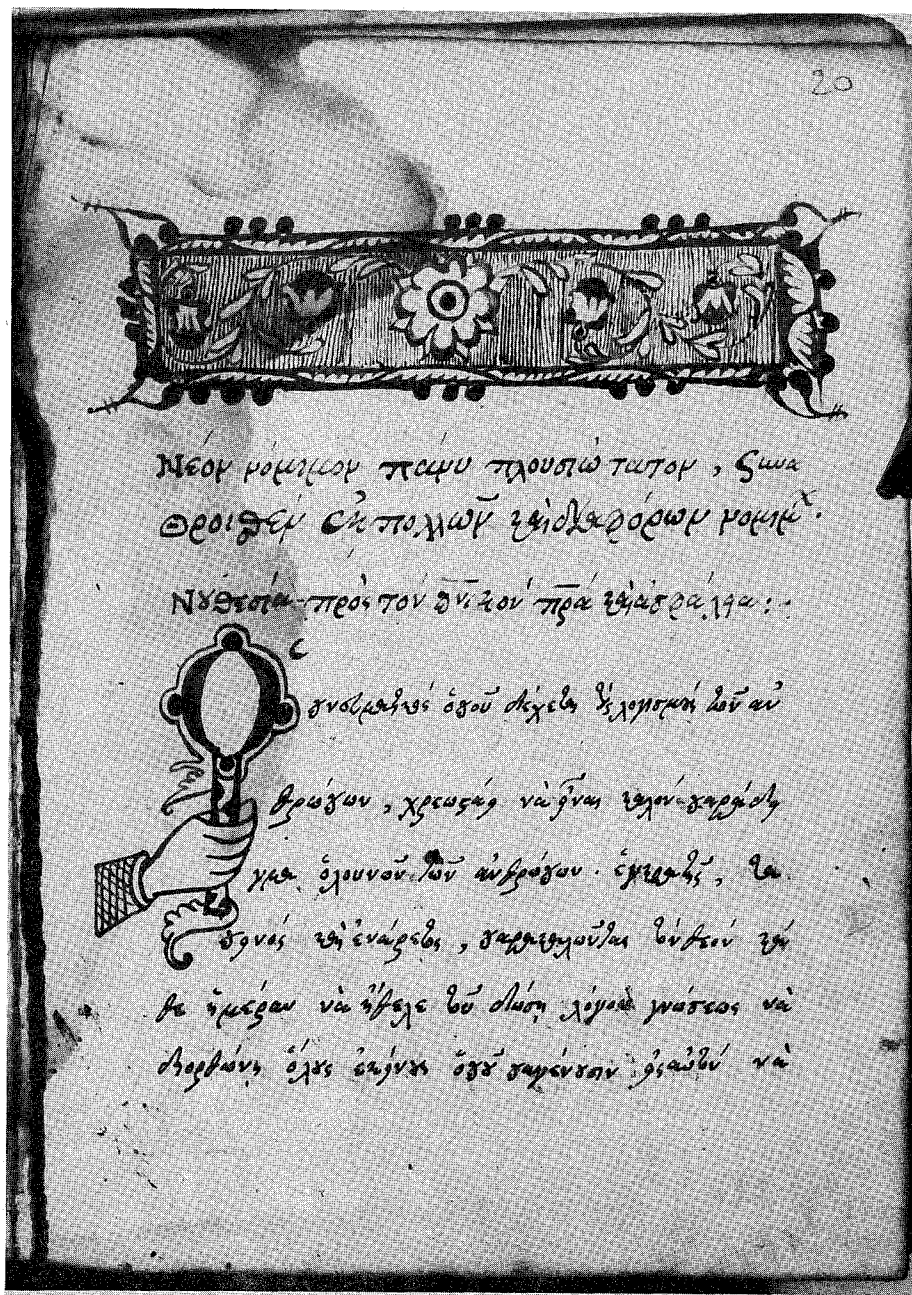 20
Νέον νόμιμον πάνυ πλουσιώτατον, συνα
θροισθὲν ἐκ πολλῶν καὶ διαφόρων νομίμ
Νουθεσία πρὸς τὸν πνικὸν πρα καὶ
Ὁ πνευματικὸς ὁποῦ δέχεται τοὺς λογισμοὺς τῶν ἀν
θρώπων, χρεωστάη νὰ ἦναι καλὸν παράδει
γμα ὁλουνοῦν τῶν ἀνθρώπων. ἐγκρατὴς, τα
πεινὸς καὶ ἐνάρετος, παρακαλῶντας τὸν θεὸν κά
θε ἡμέραν νὰ ἤθελε τοῦ δώση λόγον γνώσεως νὰ
διορθώνη ὅλους ἐκείνους ὁποῦ παγένουσιν εἰς αὐτὸν νὰ